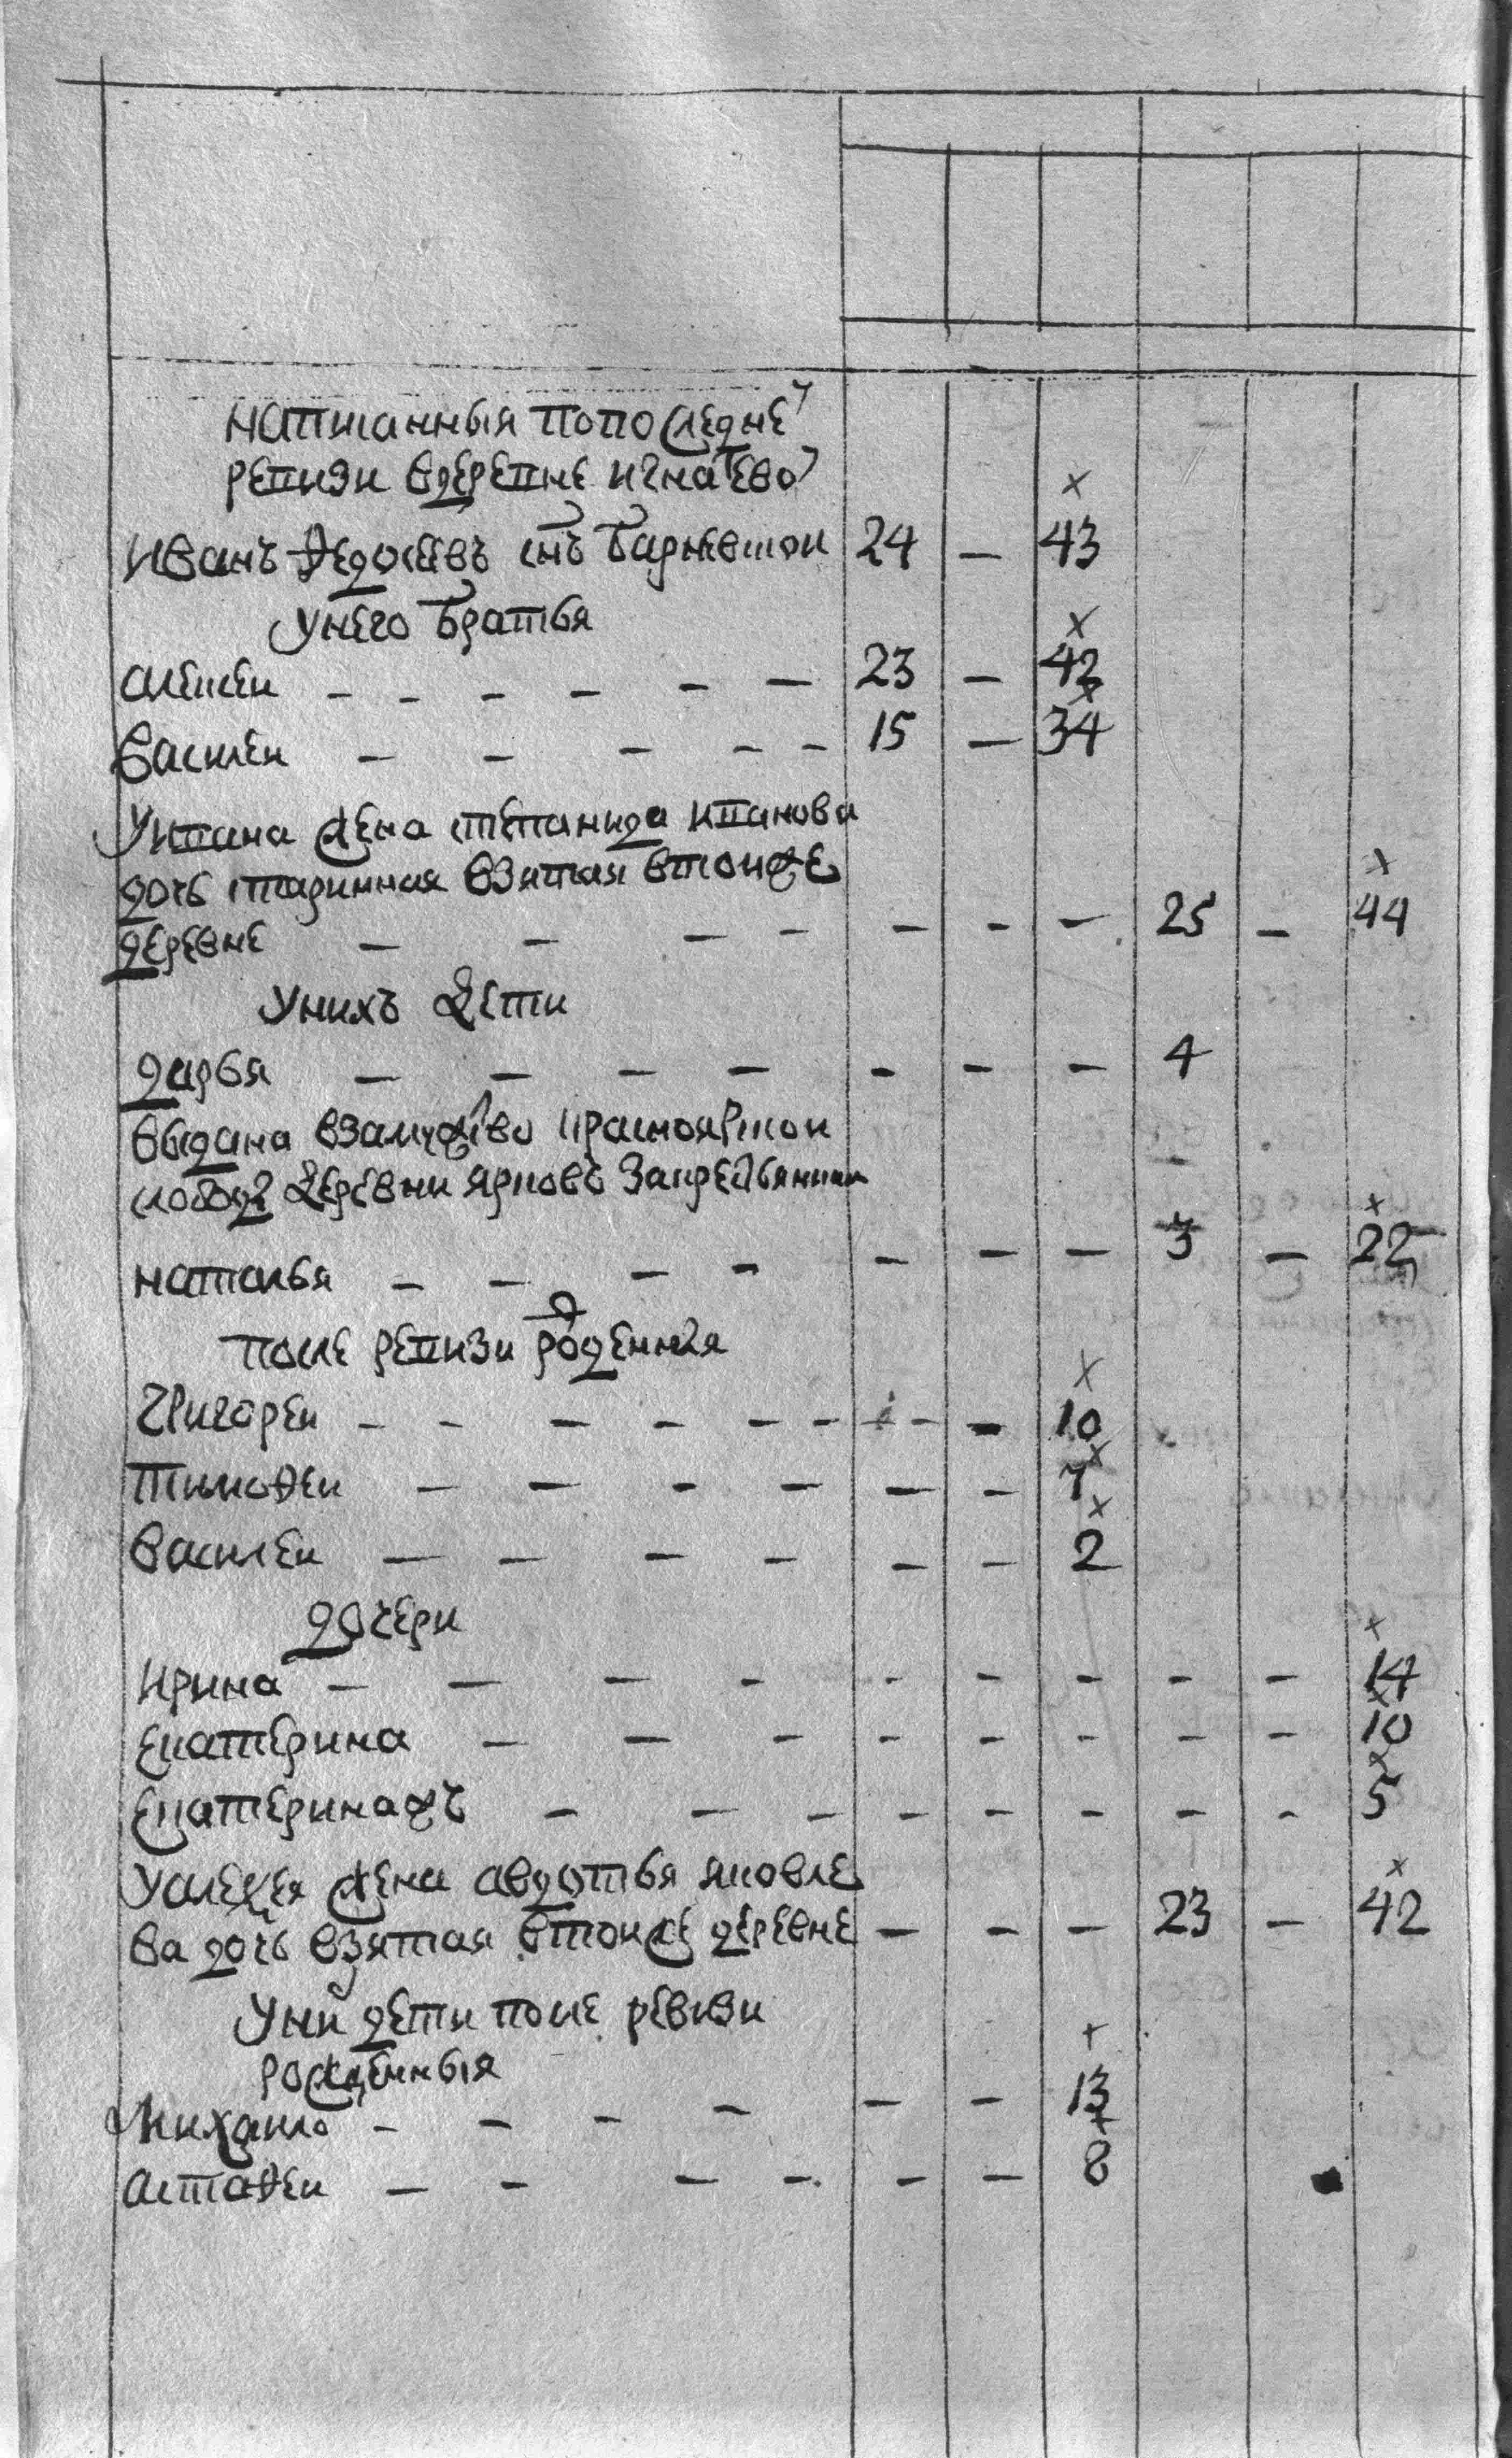 написанныя попоследне
ревизи вдеревне игнатево
Иванъ Федосеевъ снъ Барневскои 24 — 43
унего братья
алексеи — — — — — — 23 — 42
Василеи — — — — — 15 — 34
Уивана жена степанида иванова
дочь старинная взятая втоиже
деревне — — — — — — — 25 — 44
Унихъ дети
дарья — — — — — — — 4
выдана взамужство красноярскои
слободы деревни ярковъ Закрестьянина
наталья — — — — — — — 3 — 22
после ревизи рожденныя
Григореи — — — — — — — — — 10
тимофеи — — — — — — 7
Василеи — — — — — — 2
дочери
ирина — — — — — — — — — 14
екатерина — — — — — — — — 10
екатеринажъ — — — — — — — — 5
Уалексея жена авдотья яковле
ва дочь взятая втоиже деревне — — — 23 — 42
Уни дети после ревизи
рожденныя
Михаило — — — — — — 13
астафеи — — — — — — 8